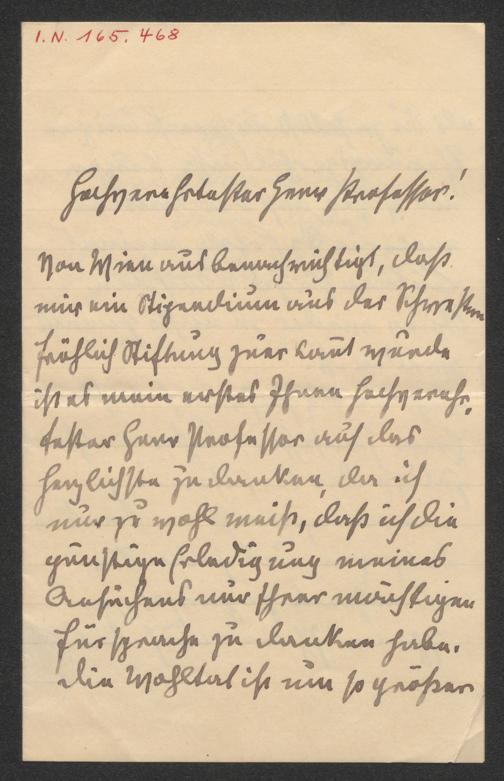 I.N. 165.468
Hochverehrtester Herr Professor!
Von Wien aus benachrichtigt, daß
mir ein Stipendium aus der Schwestern
Fröhlich Stiftung zuerkant wurde
ist es mein erstes Ihnen hochverehr-
tester Herr Professor auf das
herzlichste zu danken, da ich
nur zu wohl weiß, daß ich die
günstige Erledigung meines
Ansuchens nur Ihrer mächtigen
Fürsprache zu danken habe.
Die Wohltat ist um so größer